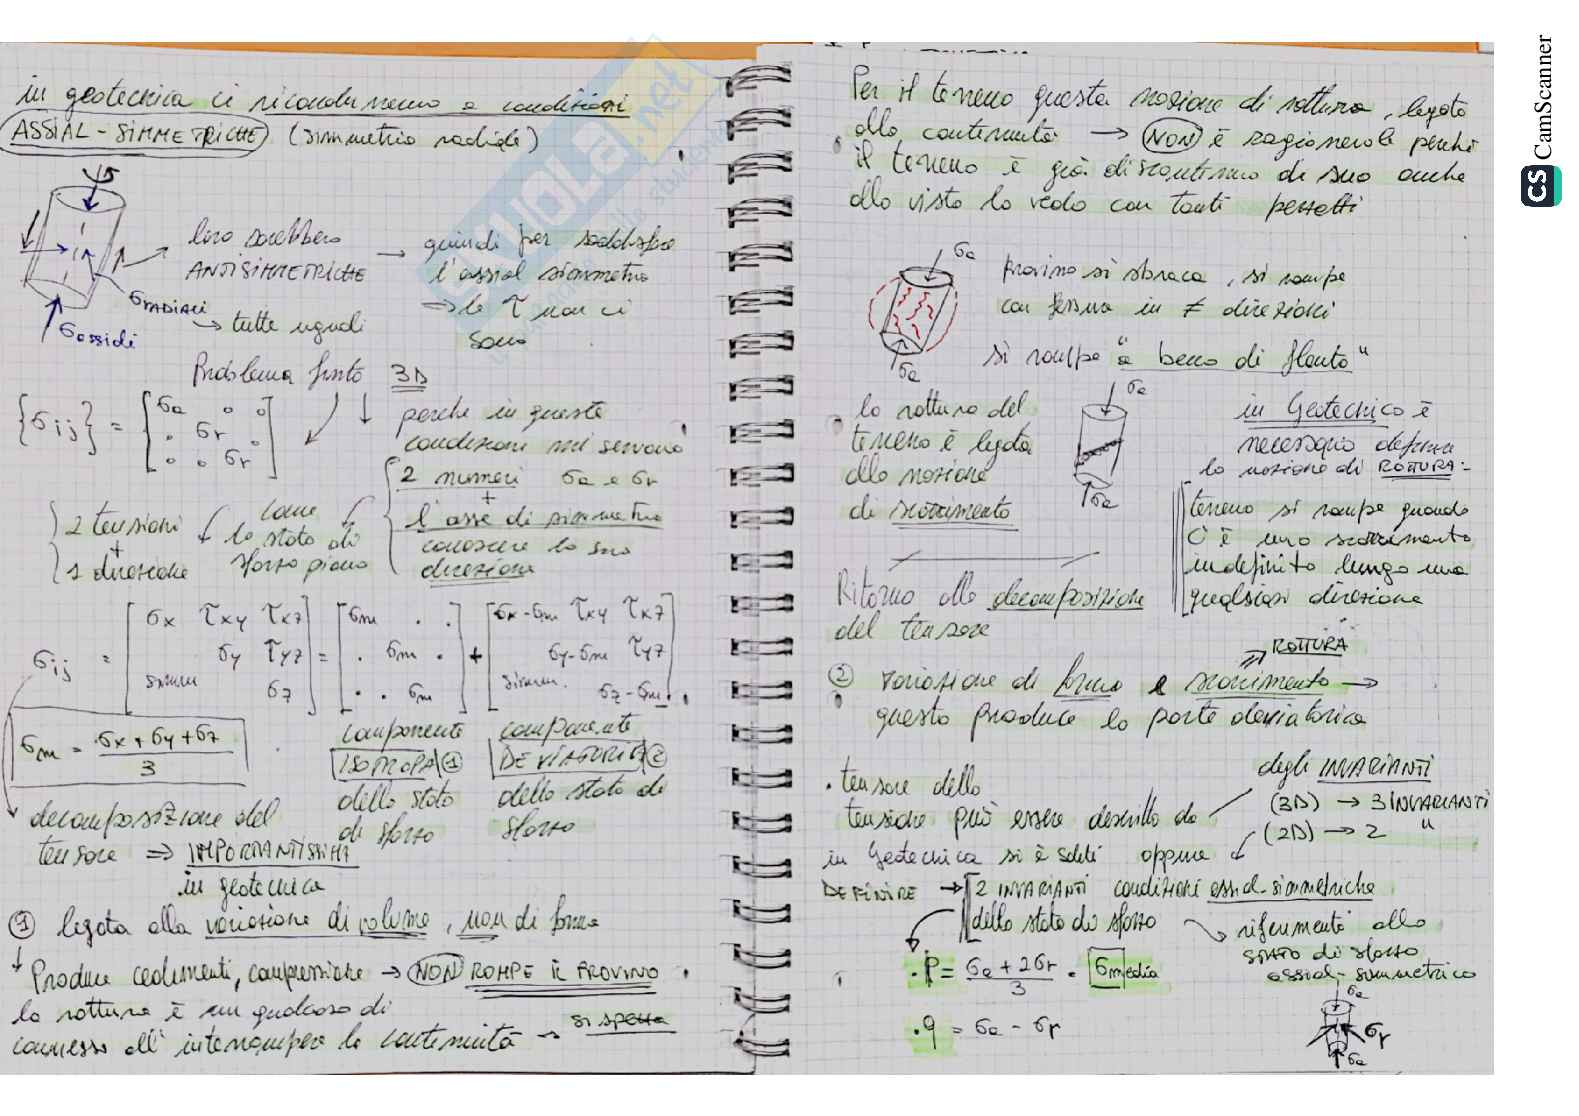 in geotecnica ci ricondurremo a condizioni
ASSIAL-SIMMETRICHE (simmetria radiale)
loro sarebbero
ANTISIMMETRICHE
quindi per soddisfare
l'assial simmetria
⇒ le τ non ci
sono
σRADIALI
→ tutte uguali
σassiali
Problema finto 3D
{σij} = [σa 0 0
0 σr 0
0 0 σr]
perché in queste
condizioni mi servono
2 numeri σa e σr
+
l'asse di simmetria
conoscere la sua
direzione
2 tensioni
+
1 direzione
come
lo stato di
sforzo piano
σij = [σx τxy τxz
σy τyz
simm σz] = [σm . .
. σm .
. . σm] + [σx-σm τxy τxz
σy-σm τyz
simm. σz-σm]
σm = σx + σy + σz / 3
componente
ISOTROPA ①
dello stato
di sforzo
componente
DEVIATORICA ②
dello stato di
sforzo
decomposizione del
tensore ⇒ IMPORTANTISSIMA
in geotecnica
① legata alla variazione di volume, non di forma
↓ Produce cedimenti, compressione → NON ROMPE IL PROVINO
la rottura è un qualcosa di
connesso all'interrompere la continuità → si spezza
Per il terreno questa nozione di rottura, legata
alla continuità → NON è ragionevole perché
il terreno è già discontinuo di suo anche
alla vista lo vedo con tanti pezzetti
σa
provino si sbraca, si rompe
con fessure in ≠ direzioni
si rompe "a becco di flauto"
σa
la rottura del
terreno è legata
alla nozione
di scorrimento
σa
σa
in Geotecnica è
necessario definire
la nozione di ROTTURA:
terreno si rompe quando
c'è uno scorrimento
indefinito lungo una
qualsiasi direzione
Ritorno alla decomposizione
del tensore
⇒ ROTTURA
② variazione di forma e scorrimento →
questo produce la parte deviatorica
• tensore della
tensione può essere descritto da
degli INVARIANTI
(3D) → 3 INVARIANTI
(2D) → 2 "
in Geotecnica si è soliti oppure
DEFINIRE → 2 INVARIANTI condizioni assial-simmetriche
dello stato di sforzo
riferimenti allo
stato di sforzo
assial-simmetrico
• P = σa + 2σr / 3 = σmedia
• q = σa - σr
σa
σr
σa
CS CamScanner